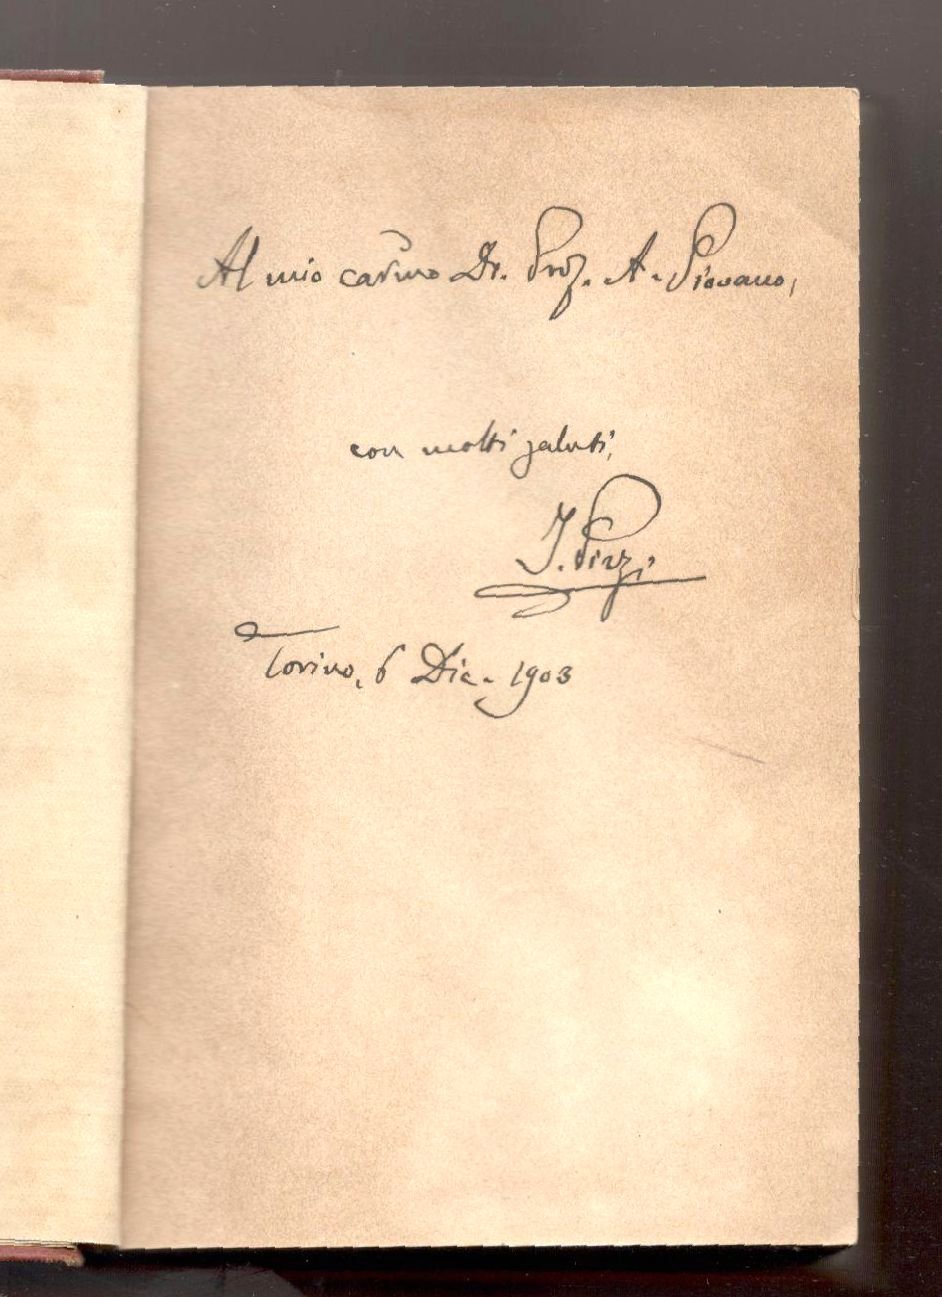 Al mio carmo Dr. Prof. A. Piovano,
con molti saluti,
I. Pizzi
Torino, 6 Dic. 1903